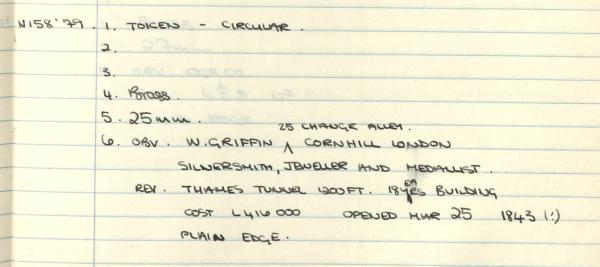 N158'79. 1. TOKEN - CIRCULAR.
2.
3.
4. Brass.
5. 25mm.
25 CHANGE ALLEY.
6. OBV. W.GRIFFIN ^ CORNHILL LONDON
SILVERSMITH, JEWELLER AND MEDALLIST.
REV. THAMES TUNNEL 1200FT. 18 YEARS BUILDING
COST L416 000 OPENED MAR 25 1843 (:)
PLAIN EDGE.